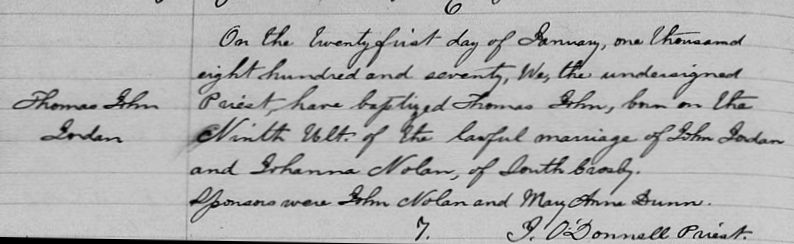 6
On the twenty first day of January, one thousand
eight hundred and seventy, We, the undersigned
Thomas John
Priest, have baptized Thomas John, born on the
Jordan
Ninth Ult. of the lawful marriage of John Jordan
and Johanna Nolan, of South Crosby.
Sponsors were John Nolan and Mary Anne Dunn.
7. J. O'Donnell Priest.